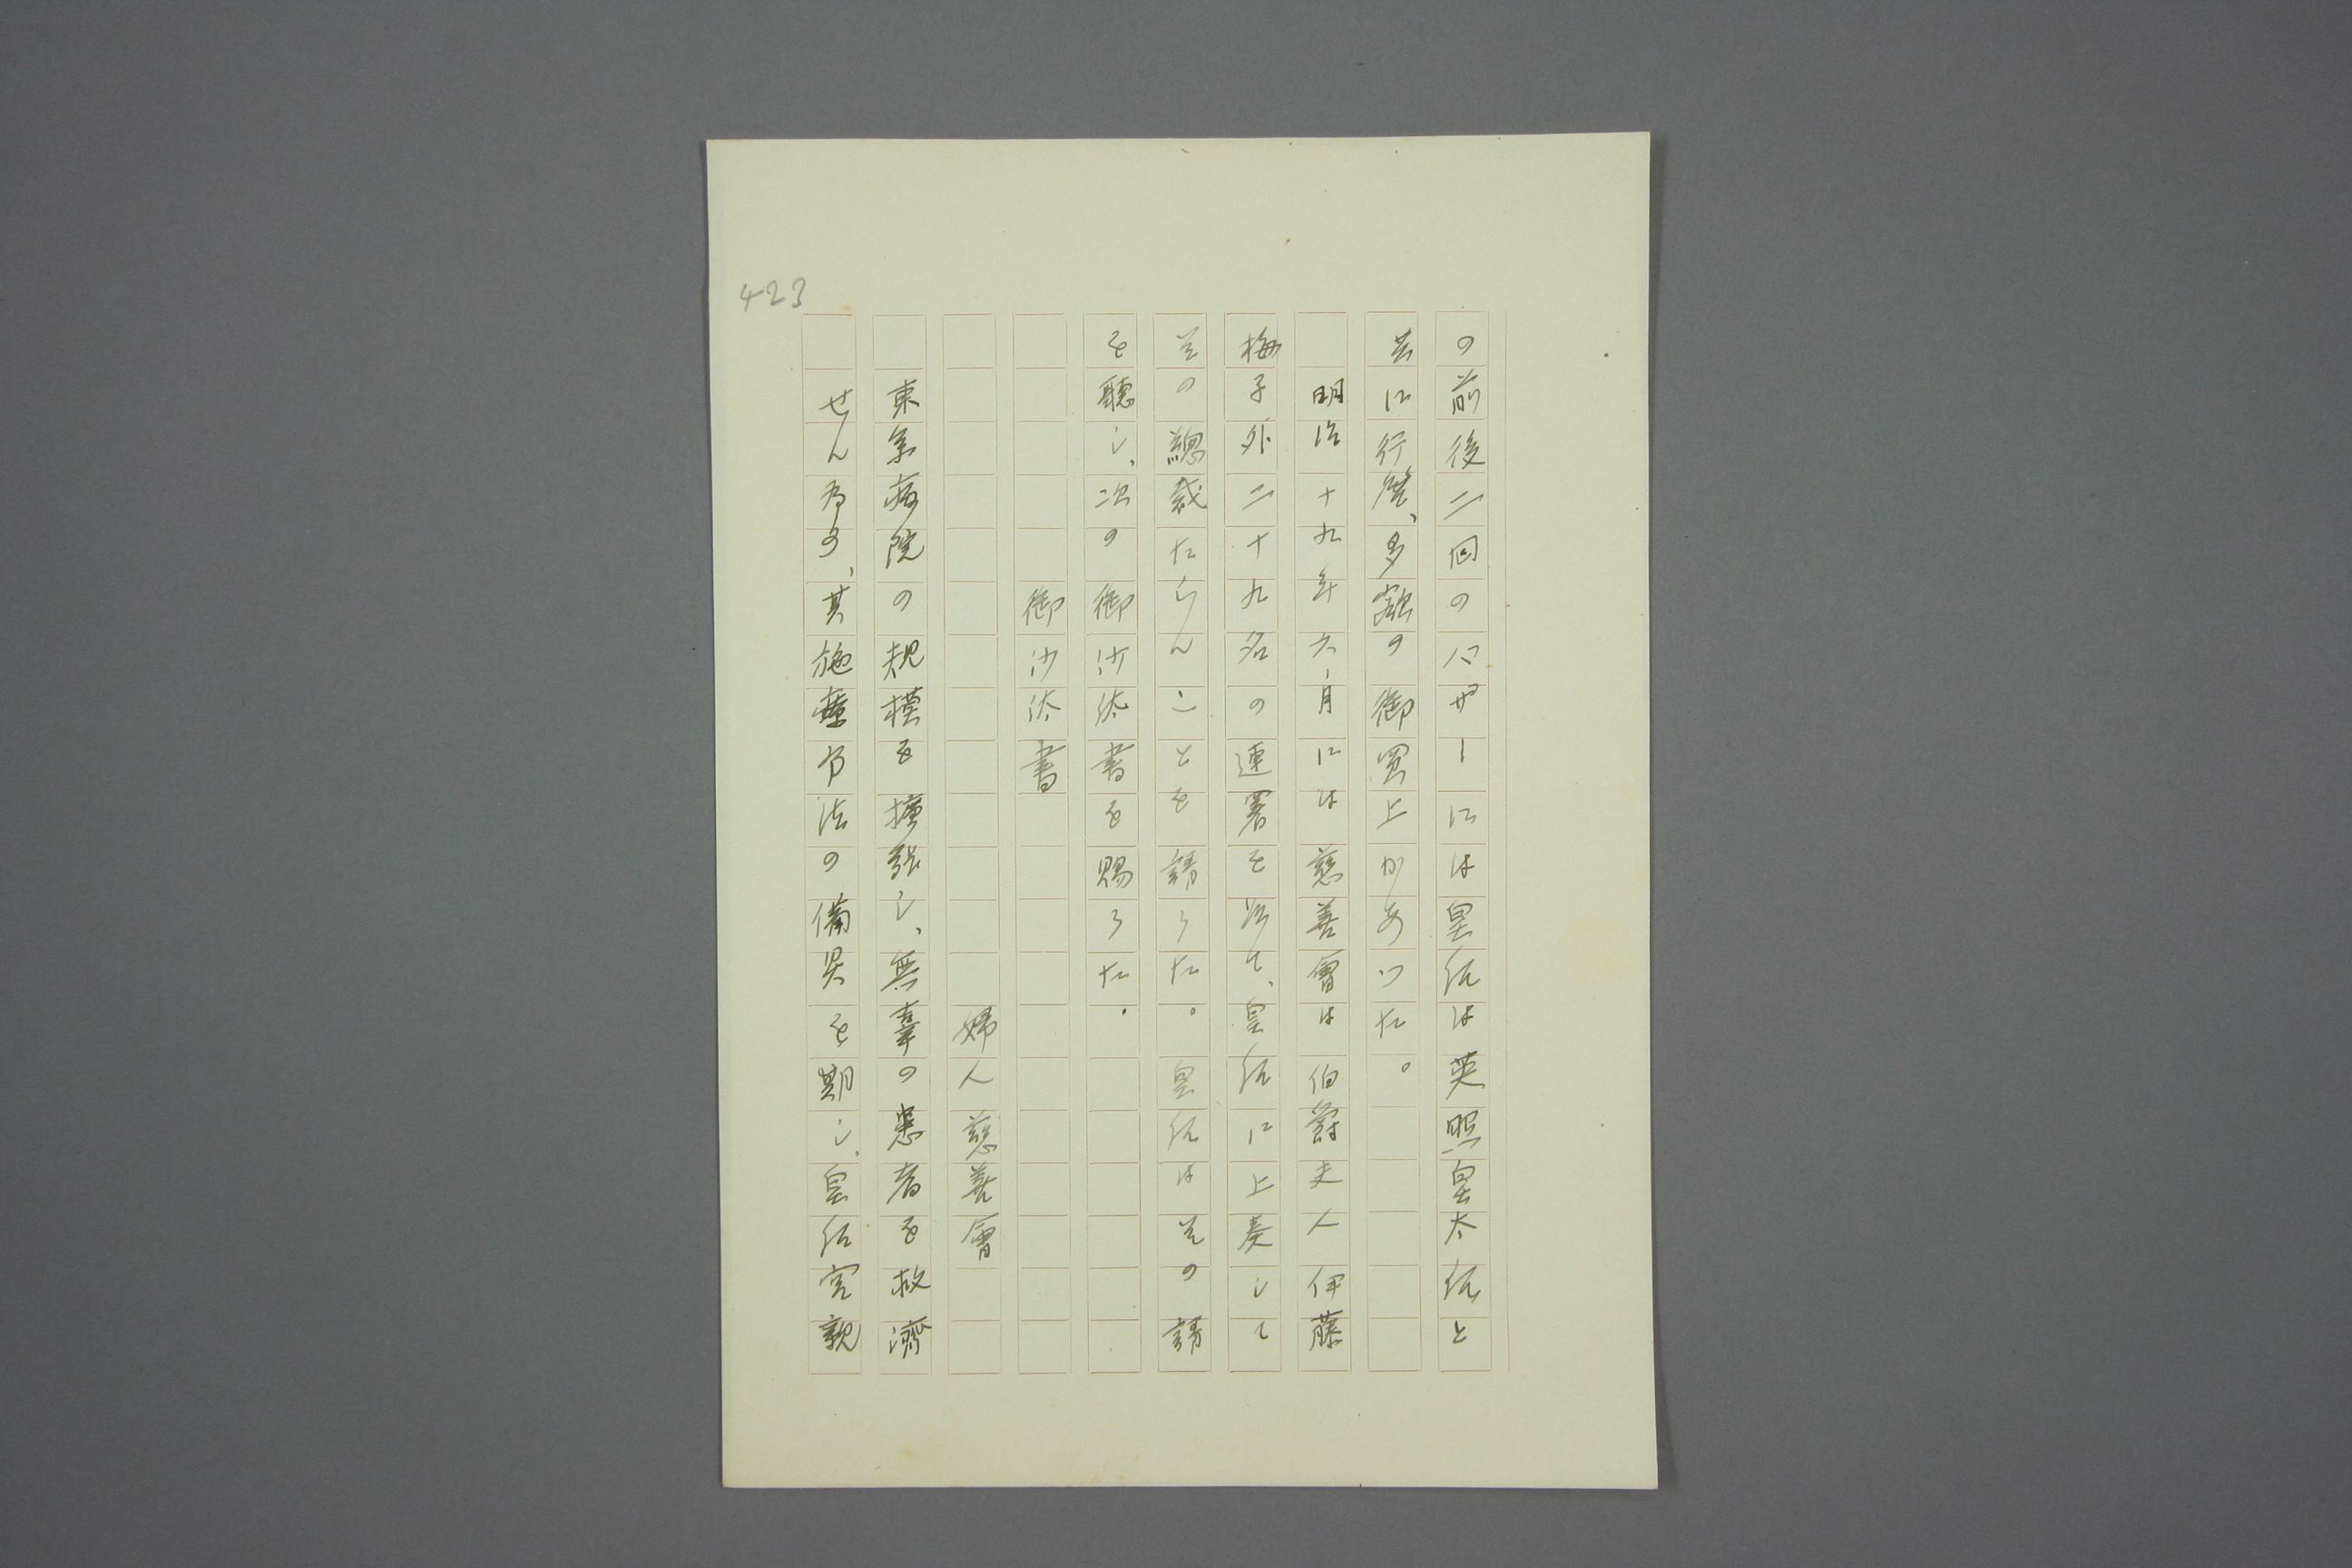 423
の前後二回のバザーには皇后は英照皇太后と
共に行啓、多額の御買上があつた。
明治十九年六月には慈善會は伯爵夫人伊藤
梅子外二十九名の連署を以て、皇后に上奏して
その總裁たらんことを請うた。皇后はその請
を聽し、次の御沙汰書を賜うた。
御沙汰書
婦人慈善會
東京病院の規模を擴張し、無辜の患者を救濟
せん為め、其施療方法の備具を期し、皇后宮親